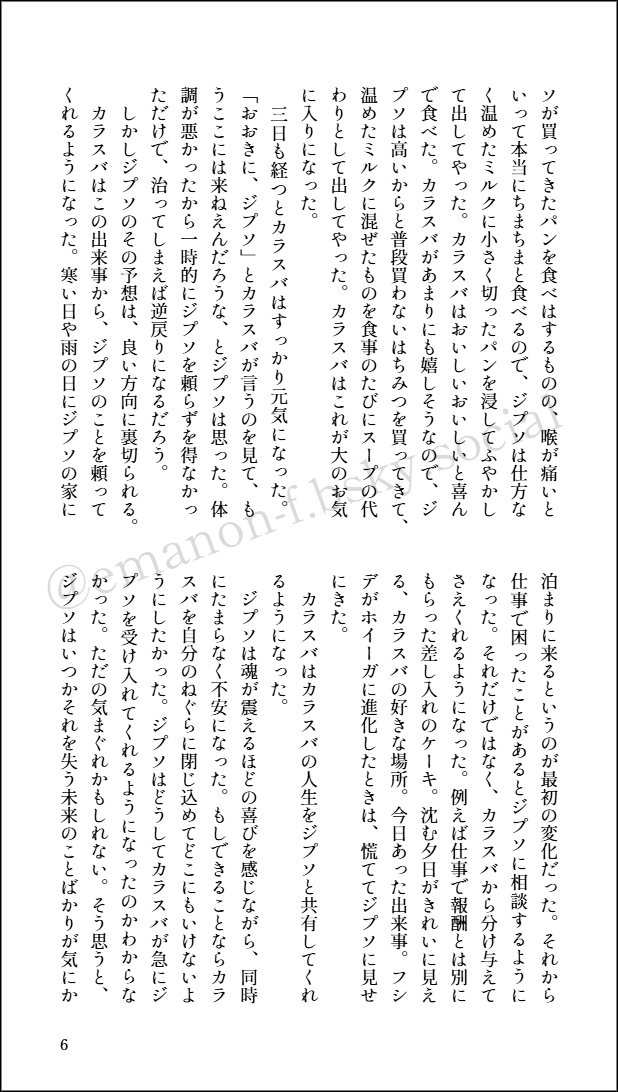 ソが買ってきたパンを食べはするものの、喉が痛いと
いって本当にちまちまと食べるので、ジプソは仕方な
く温めたミルクに小さく切ったパンを浸してふやかし
て出してやった。カラスバはおいしいおいしいと喜ん
で食べた。カラスバがあまりにも嬉しそうなので、ジ
プソは高いからと普段買わないはちみつを買ってきて、
温めたミルクに混ぜたものを食事のたびにスープの代
わりとして出してやった。カラスバはこれが大のお気
に入りになった。
三日も経つとカラスバはすっかり元気になった。
「おおきに、ジプソ」とカラスバが言うのを見て、も
うここには来ねえんだろうな、とジプソは思った。体
調が悪かったから一時的にジプソを頼らずを得なかっ
ただけで、治ってしまえば逆戻りになるだろう。
しかしジプソのその予想は、良い方向に裏切られる。
カラスバはこの出来事から、ジプソのことを頼って
くれるようになった。寒い日や雨の日にジプソの家に
泊まりに来るというのが最初の変化だった。それから
仕事で困ったことがあるとジプソに相談するように
なった。それだけではなく、カラスバから分け与えて
さえくれるようになった。例えば仕事で報酬とは別に
もらった差し入れのケーキ。沈む夕日がきれいに見え
る、カラスバの好きな場所。今日あった出来事。フシ
デがホイーガに進化したときは、慌ててジプソに見せ
にきた。
カラスバはカラスバの人生をジプソと共有してくれ
るようになった。
ジプソは魂が震えるほどの喜びを感じながら、同時
にたまらなく不安になった。もしできることならカラ
スバを自分のねぐらに閉じ込めてどこにもいけないよ
うにしたかった。ジプソはどうしてカラスバが急にジ
プソを受け入れてくれるようになったのかわからな
かった。ただの気まぐれかもしれない。そう思うと、
ジプソはいつかそれを失う未来のことばかりが気にか
6
@emanon-f.bsky.social